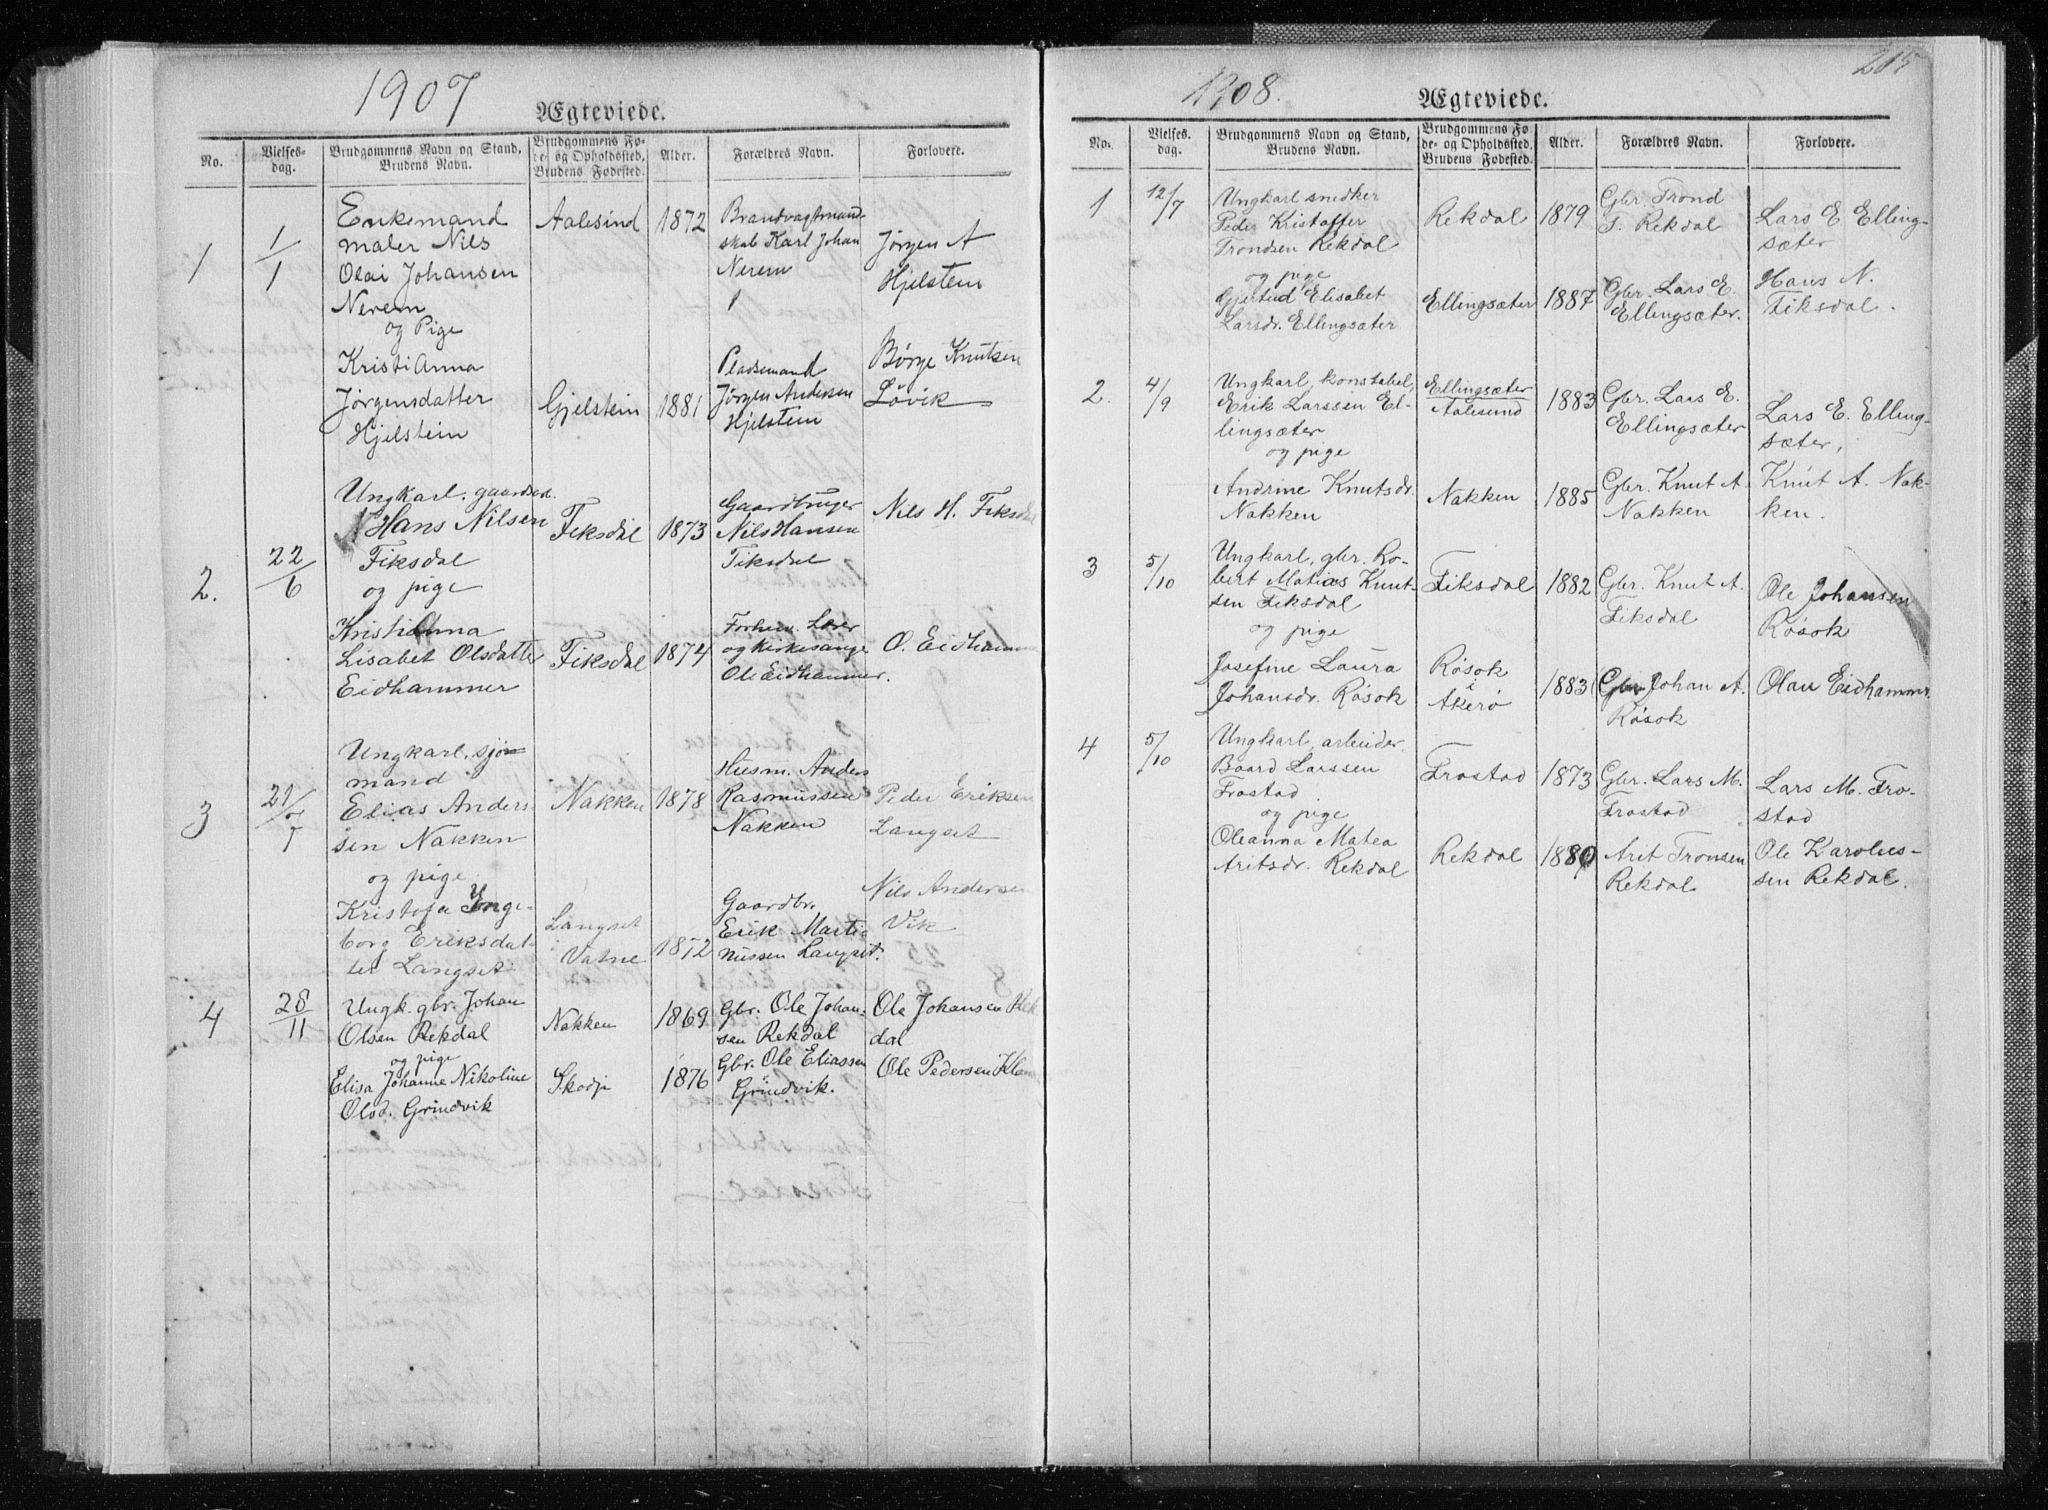 1907
Ægteviede.
No.
Vielses-
dag.
Brudgommens Navn og Stand,
Brudens Navn.
Brudgommens Fø-
de- og Opholdssted,
Brudens Fødested.
Alder.
Forældres Navn.
Forlovere.
1
1/1
Enkemand
maler Nils
Olai Johansen
Nerem
og Pige
Kristi Anna
Jørgensdatter
Hjelstein
Aalesund
Gjelstein
1872
1881
Brandvagtmand-
skab Karl Johan
Nerem
Pladsemand
Jørgen Andersen
Hjelstein
Jørgen A
Hjelstein
Børge Knutsen
Løvik
2.
22/6
Ungkarl. gaardbr.
Hans Nilsen
Fiksdal
og pige
Kristianna
Lisabet Olsdatter
Eidhammer
Fiksdal
Fiksdal
1873
1874
Gaardbruger
Nils Hansen
Fiksdal
Forhen. Lærer
og Kirkesanger
Ole Eidhammer.
Nils H. Fiksdal
O. Eidhammer
3
21/7
Ungkarl, sjø-
mand
Elias Anders-
sen Nakken
og pige
Kristofa Inge-
borg Eriksdat-
ter Langset
Nakken
Langset
i
Vatne
1878
1872
Husm. Anders
Rasmussen
Nakken
Gaardbr.
Erik Marti-
nussen Langset.
Peder Eriksen
Langset
Nils Andersen
Vik
4
28/11
Ungk. gbr. Johan
Olsen Rekdal
og pige
Elisa Johanne Nikoline
Olsd. Grindvik
Nakken
Skodje
1869
1876
Gbr. Ole Johan-
sen Rekdal
Gbr. Ole Eliassen
Grindvik.
Ole Johansen Rek
dal
Ole Pedersen
1908.
Ægteviede.
215
No.
Vielses-
dag.
Brudgommens Navn og Stand,
Brudens Navn.
Brudgommens Fø-
de- og Opholdssted,
Brudens Fødested.
Alder.
Forældres Navn.
Forlovere.
1
12/7
Ungkarl snedker
Peder Kristoffer
Trondsen Rekdal
og pige
Gjertud Elisabet
Larsdr. Ellingsæter
Rekdal
Ellingsæter
1879
1887
Gbr. Trond
T. Rekdal
Gbr. Lars E.
Ellingsæter.
Lars E Elling-
sæter
Hans N.
Fiksdal.
2.
4/9
Ungkarl, konstabel,
Erik Larssen El-
lingsæter
og pige
Andrine Knutsdr.
Nakken
Ellingsæter
Aalesund
Nakken
1883
1885
Gbr. Lars E.
Ellingsæter
Gbr. Knut A.
Nakken
Lars E. Elling-
sæter,
Knut A. Nak-
ken.
3
5/10
Ungkarl, gbr. Ro-
bert Matias Knut-
sen Fiksdal
og pige
Josefine Laura
Johansdr. Røsok
Fiksdal
Røsok
i
Akerø
1882
1883
Gbr. Knut A.
Fiksdal
Gbr. Johan A.
Røsok
Ole Johansen
Røsok
Olau Eidhammer.
4
5/10
Ungkarl, arbeider
Baard Larssen
Frostad
og pige
Oleanna Matea
Aritsdr. Rekdal
Frostad
Rekdal
1873
1880
Gbr. Lars M.
Frostad
Arit Tronsen
Rekdal
Lars M. Fro-
stad
Ole Karolius-
sen Rekdal.